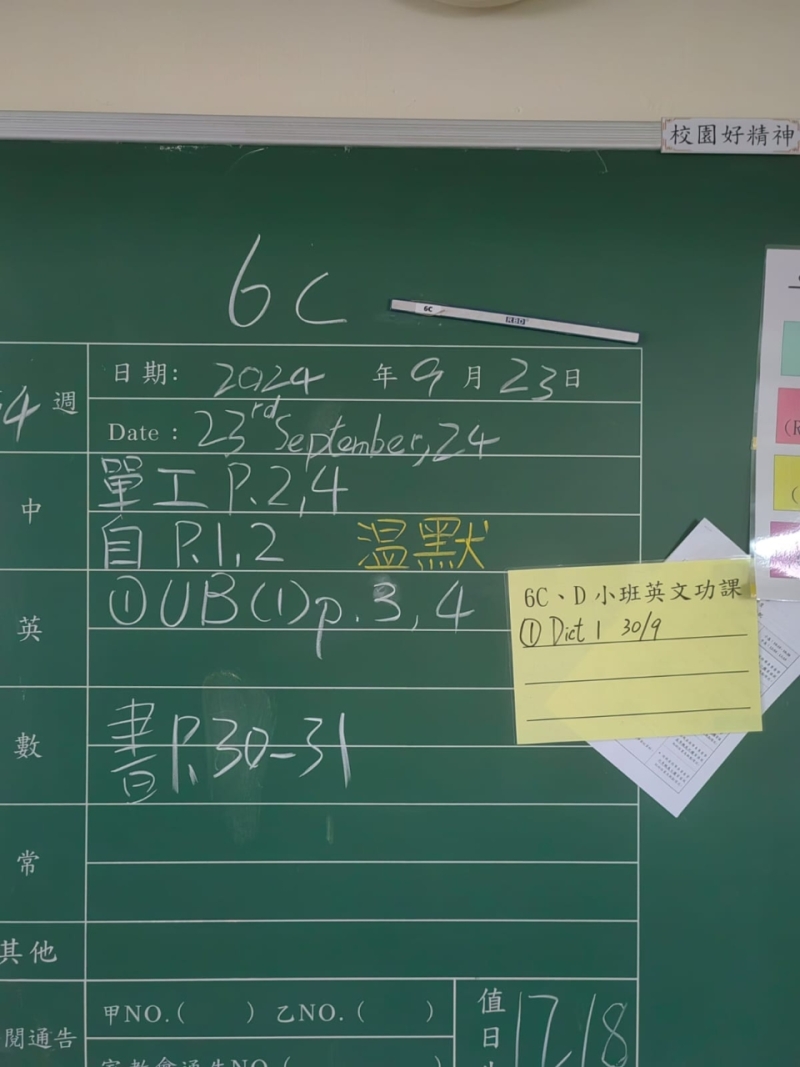 校園好精神
6C
6C
4 週
日期: 2024 年 9 月 23 日
Date : 23rd September, 24
中
單工 P.2,4
自 P.1,2 温默
英
① UB(1) p.3, 4
6C、D 小班英文功課
① Dict 1 30/9
數
書 P.30-31
常
其他
閱通告
甲NO.( ) 乙NO.( )
值日
17,18